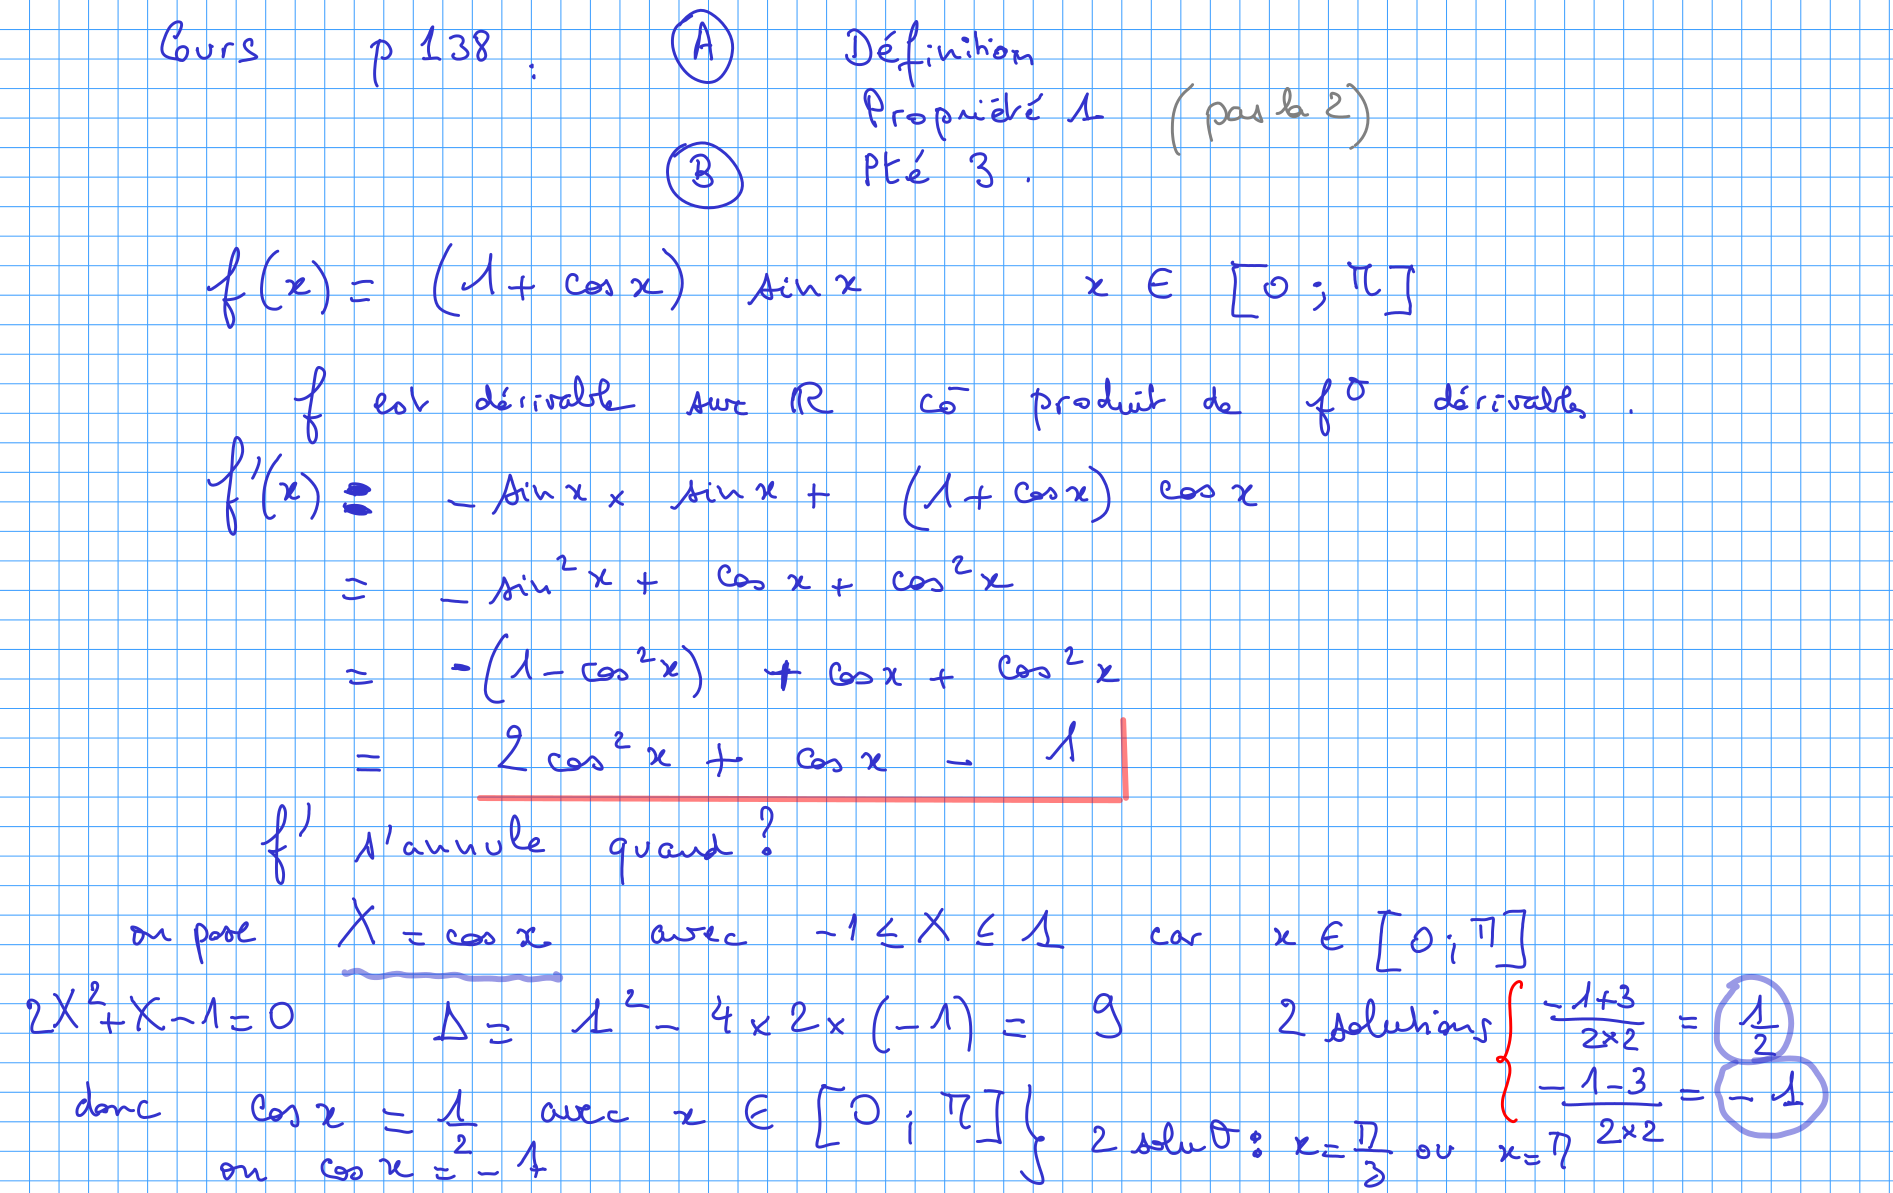 Cours p 138 : A Définition
Propriété 1 (pas la 2)
B Pté 3.
f(x) = (1 + cos x) sin x x ∈ [0 ; π]
f est dérivable sur ℝ cō produit de f° dérivables.
f'(x) = - sin x × sin x + (1 + cos x) cos x
= - sin² x + cos x + cos² x
= - (1 - cos² x) + cos x + cos² x
= 2 cos² x + cos x - 1
f' s'annule quand ?
on pose X = cos x avec -1 ≤ X ≤ 1 car x ∈ [0 ; π]
2X² + X - 1 = 0 Δ = 1² - 4 × 2 × (-1) = 9 2 solutions { (-1+3)/(2×2) = 1/2
(-1-3)/(2×2) = -1
donc cos x = 1/2 avec x ∈ [0 ; π] } 2 soluθ : x = π/3 ou x = π
ou cos x = -1